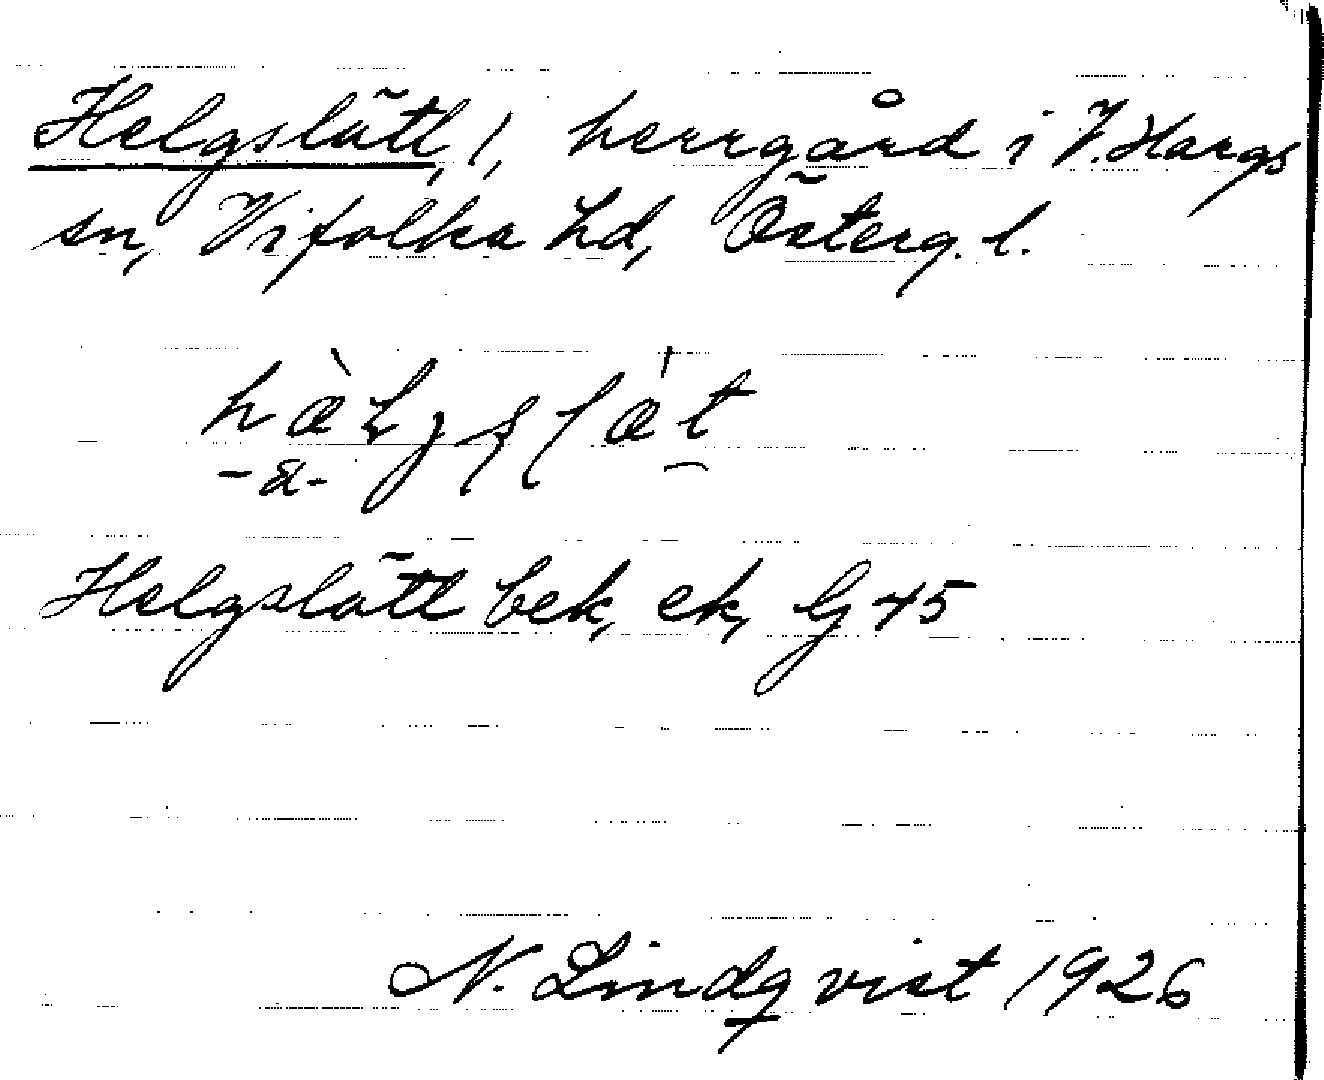 Helgslätt, 1, herrgård i V. Hargs
sn, Vifolka hd, Österg. l.
-a-
Helgslätt bek, ek, G 45
N. Lindqvist 1926